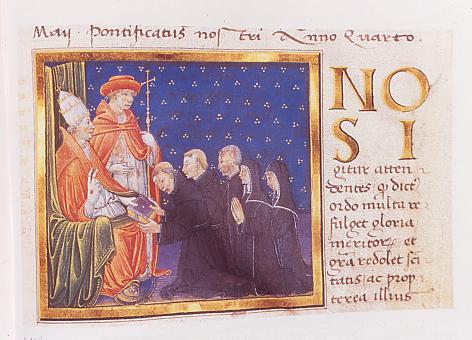 Maij Pontificatus nostri Anno Quarto.
NO
S I
gitur atten
dentes q dict
ordo multa re
fulget gloria
meritor et
gra redolet sci
tatis ac prop
terea illius